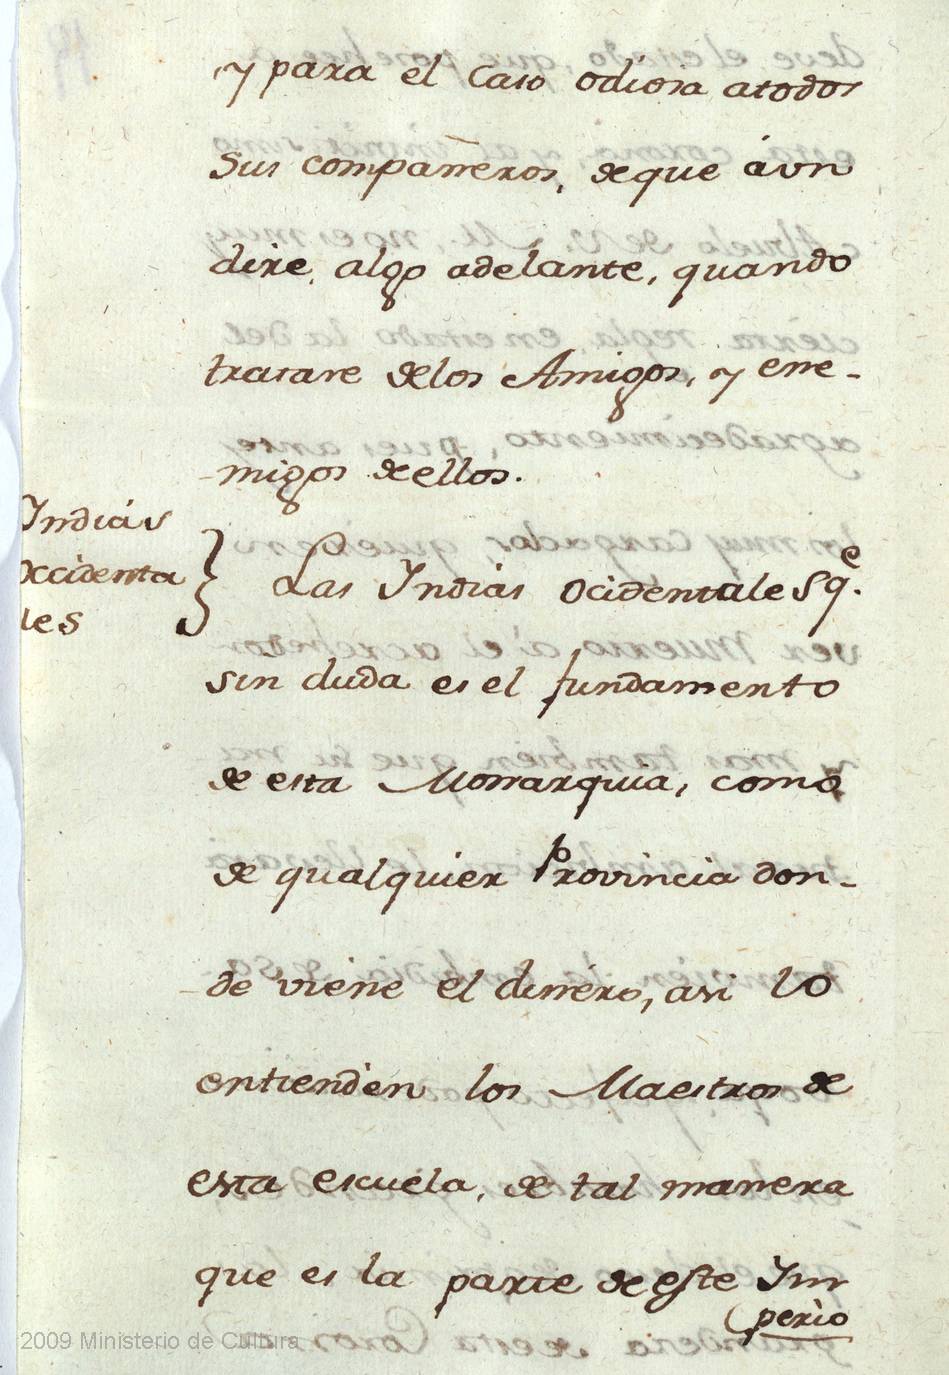 y para el Caso odiosa atodos
Sus compañeros, deque aun
dire, algo adelante, quando
tratare delos Amigos, y ene-
migos de ellos.
Indias
occidenta
les
Las Indias OcidentaleS q.e
sin duda es el fundamento
de esta Monarquia, como
de qualquier Provincia don-
de viene el dinero, asi lo
entienden los Maestros de
esta escuela, de tal manera
que es la parte de este Im
perio
2009 Ministerio de Cultura